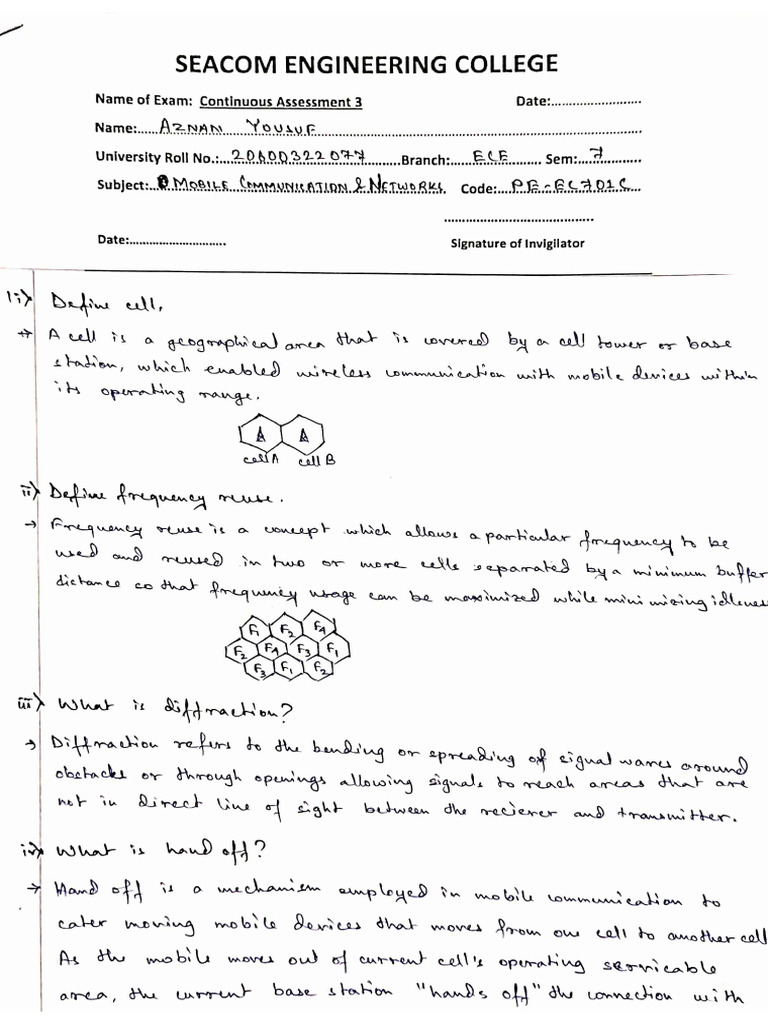 SEACOM ENGINEERING COLLEGE
Name of Exam: Continuous Assessment 3 Date:........................
Name:..... AZNAN YOUSUF
University Roll No.: 20600322077 Branch: ECE Sem: 7
Subject: MOBILE COMMUNICATION & NETWORKS. Code: PE-EC701C
Date:........................... Signature of Invigilator
1 i) Define cell,
→ A cell is a geographical area that is covered by a cell tower or base
station, which enabled wireless communication with mobile devices within
its operating range.
cell A cell B
ii) Define frequency reuse.
→ Frequency reuse is a concept which allows a particular frequency to be
used and reused in two or more cells separated by a minimum buffer
distance so that frequency usage can be maximized while minimizing idleness
F1 F2 F4
F2 F4 F3 F1
F3 F1 F2
iii) What is diffraction?
→ Diffraction refers to the bending or spreading of signal waves around
obstacles or through openings allowing signals to reach areas that are
not in direct line of sight between the reciever and transmitter.
iv) What is hand off?
→ Hand off is a mechanism employed in mobile communication to
cater moving mobile devices that moves from one cell to another cell
As the mobile moves out of current cell's operating servicable
area, the current base station "hands off" the connection with